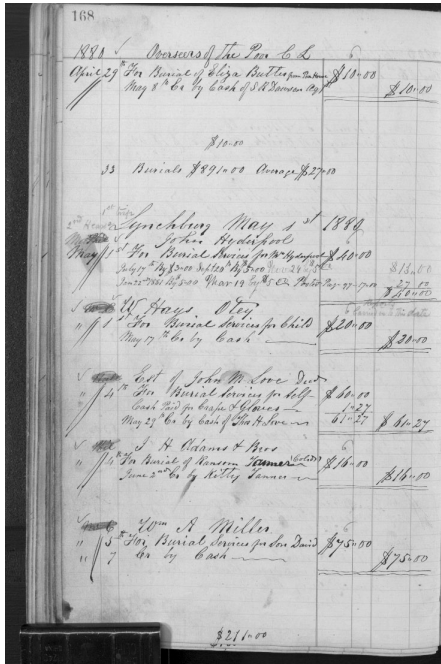 168
1880 Overseers of the Poor C L
April 29th For Burial of Eliza Butler from $10.00
May 8th Cr by Cash of $10.00
$10.00
33 Burials $891.00 Average $27.00
Lynchburg May 1st 1880
John Hyderpool
May 1st For Burial Services for Hyderpool $40.00
July 17 By $3.00 Sept 20th By $5.00 $13.00
Jan 22nd 1881 By 5.00 Mar 19 By $5 27.00
$40.00
Hays Otey
" 1st For Burial Services for Child $20.00
May 17th Cr by Cash $20.00
Est of John W. Love Decd
" 4th For Burial Services for Self $60.00
Cash Paid for Crape & Gloves 1.27
May 29th Cr by Cash of Thos H. Love 61.27 $61.27
J. H. Adams & Bros
" 4th For Burial of Ransom Tanner $16.00
June 2nd Cr by Kitty Tanner $16.00
Wm A Miller
" 5th For Burial Services for Son David $75.00
" 7 Cr by Cash $75.00
$211.00